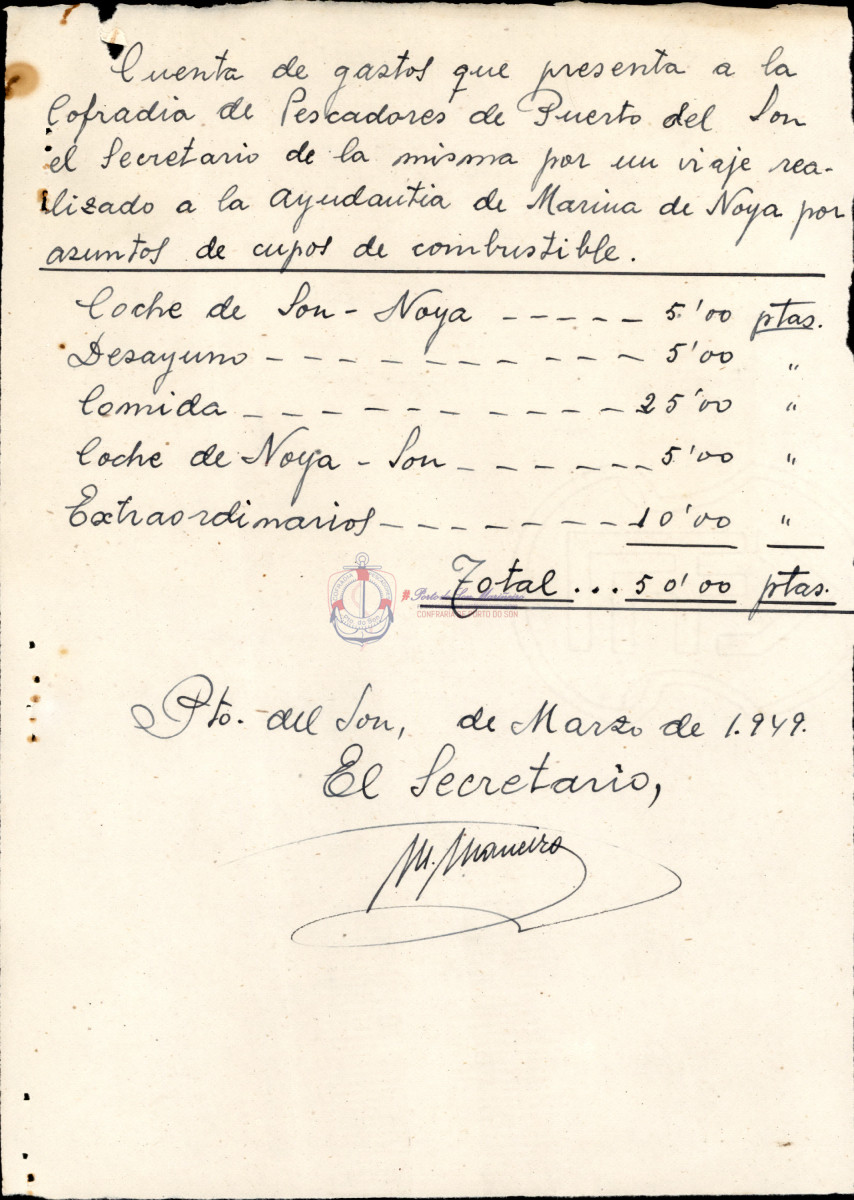 Cuenta de gastos que presenta a la
Cofradia de Pescadores de Puerto del Son
el Secretario de la misma por un viaje rea-
lizado a la Ayudantia de Marina de Noya por
asuntos de cupos de combustible.
Coche de Son - Noya ----- 5'00 ptas.
Desayuno ---------- 5'00 "
Comida ---------- 25'00 "
Coche de Noya - Son ------- 5'00 "
Extraordinarios ------- 10'00 "
Total ... 50'00 ptas.
COFRADIA PESCADORES
Pto. do Son
# Porto do Son Marineiro
CONFRARÍA DE PORTO DO SON
Pto. del Son, de Marzo de 1.949.
El Secretario,
M. Maneiro